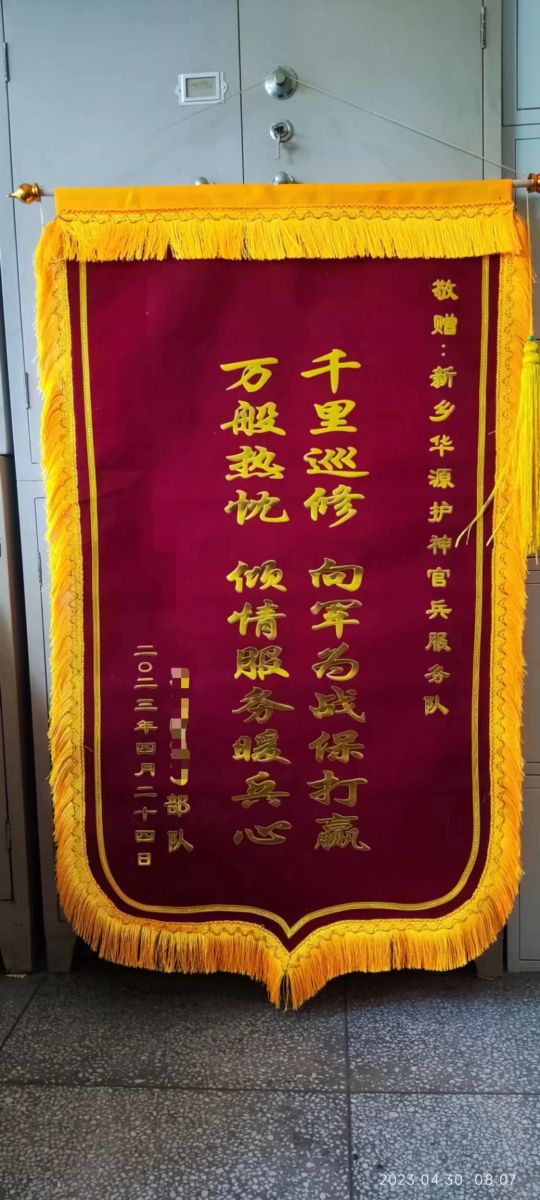 敬赠：新乡华源护神官兵服务队
千里巡修 向军为战保打赢
万般热忱 倾情服务暖兵心
部队
二〇二三年四月二十四日
2023.04.30 08:07